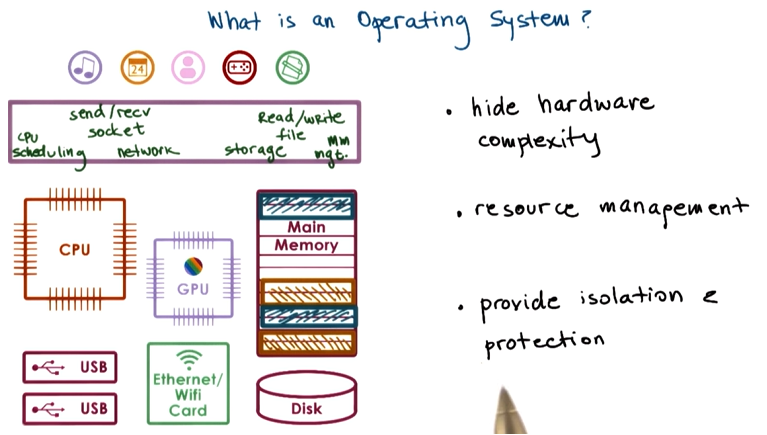 What is an Operating System?
24
send/recv
socket
Read/write
file
CPU
scheduling
network
storage
MM
mgt.
CPU
GPU
Main
Memory
USB
USB
Ethernet/
Wifi
Card
Disk
• hide hardware
complexity
• resource management
• provide isolation &
protection